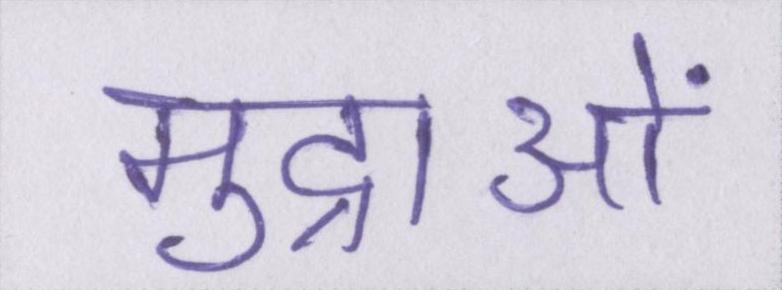 मुद्राओं